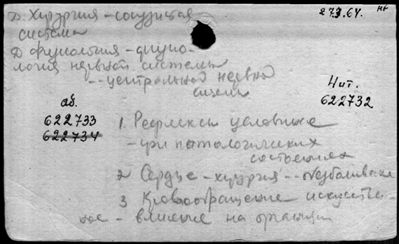 273.64.
Д Хирургия - сосудистая
система
Д Физиология - физио-
логия нервной системы
-- центральной нервной
Чит.
622732
аб.
622733
622734
1. Рефлексы условные
- при патологических
состояниях
2 Сердце - хирургия -- обезболивание
3 Кровообращение искусствен-
ное - влияние на